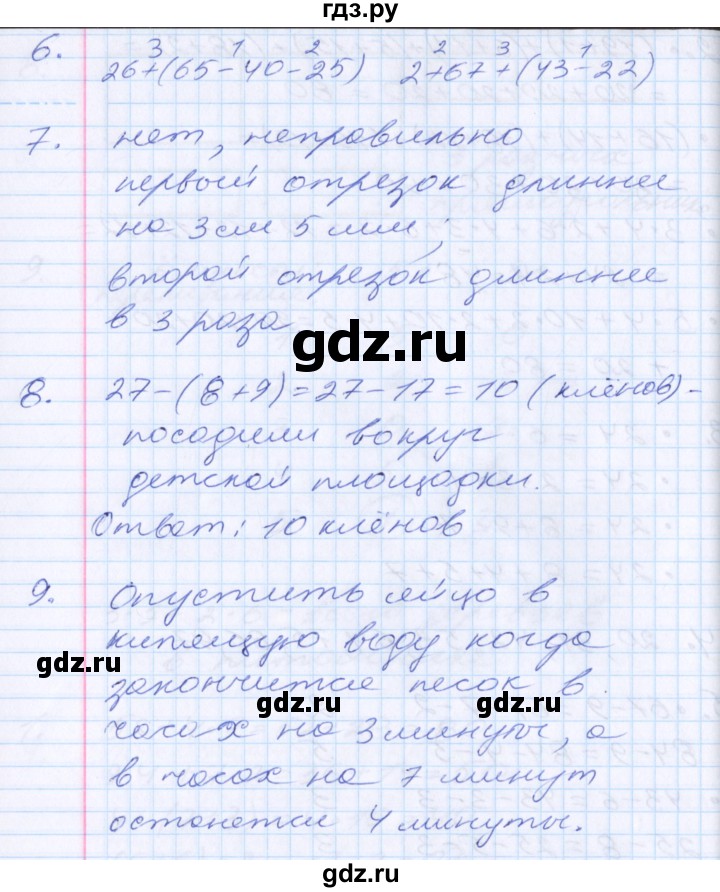 гдз.ру
3 1 2 2 3 1
6. 26+(65-40-25) 2+67+(43-22)
7. нет, неправильно
первый отрезок длиннее
на 3 см 5 мм;
второй отрезок длиннее
в 3 раза
gdz.ru
8. 27-(8+9)=27-17=10 (клёнов)-
посадили вокруг
детской площадки.
Ответ: 10 клёнов
9. Опустить яйцо в
кипящую воду когда
gdz.ru
закончится песок в
gdz.ru
часах на 3 минуты, а
в часах на 7 минут
останется 4 минуты.
gdz.ru